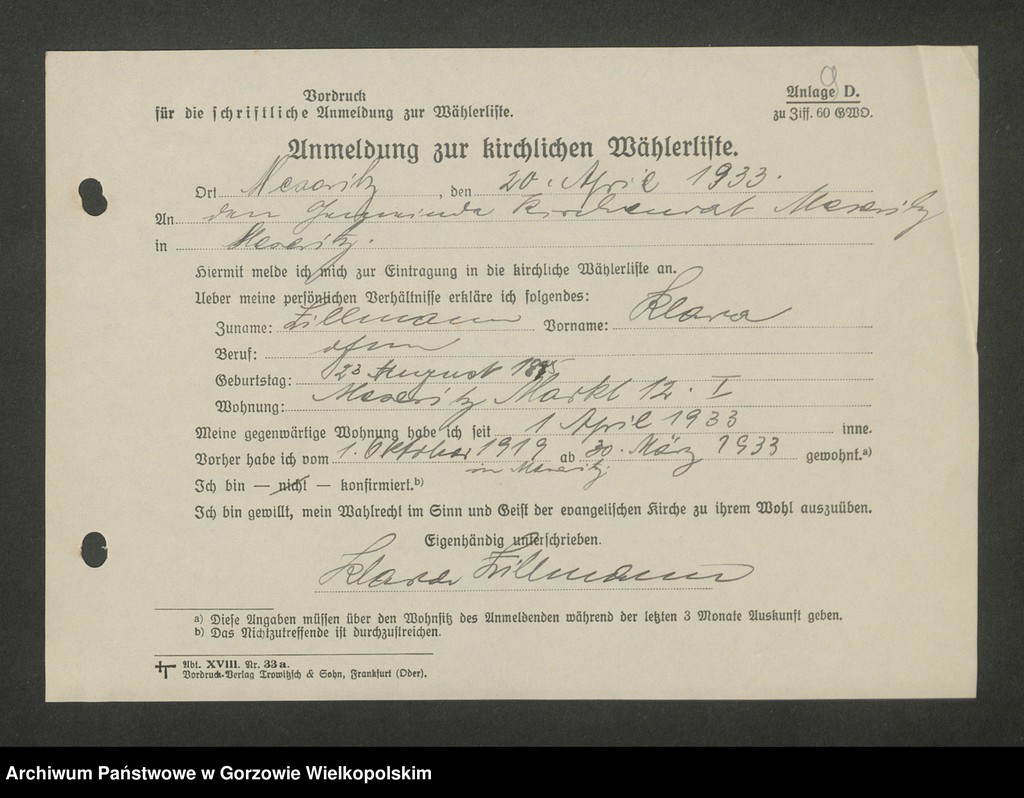 9
Vordruck
für die schriftliche Anmeldung zur Wählerliste.
Anlage D.
zu Ziff. 60 GWO.
Anmeldung zur kirchlichen Wählerliste.
Ort Meseritz, den 20. April 1933.
An den Gemeinde Kirchenrat Meseritz
in Meseritz.
Hiermit melde ich mich zur Eintragung in die kirchliche Wählerliste an.
Ueber meine persönlichen Verhältnisse erkläre ich folgendes:
Zuname: Zillmann Vorname: Klara
Beruf: ohne
Geburtstag: 23 August
Wohnung: Meseritz Markt 12. I
Meine gegenwärtige Wohnung habe ich seit 1 April 1933 inne.
Vorher habe ich vom 1. Oktober 1919 ab 30. März 1933 gewohnt.a)
in Meseritz.
Ich bin — nicht — konfirmiert.b)
Ich bin gewillt, mein Wahlrecht im Sinn und Geist der evangelischen Kirche zu ihrem Wohl auszuüben.
Eigenhändig unterschrieben.
Klara Zillmann
a) Diese Angaben müssen über den Wohnsitz des Anmeldenden während der letzten 3 Monate Auskunft geben.
b) Das Nichtzutreffende ist durchzustreichen.
Abt. XVIII. Nr. 33a.
Vordruck-Verlag Trowitzsch & Sohn, Frankfurt (Oder).
Archiwum Państwowe w Gorzowie Wielkopolskim